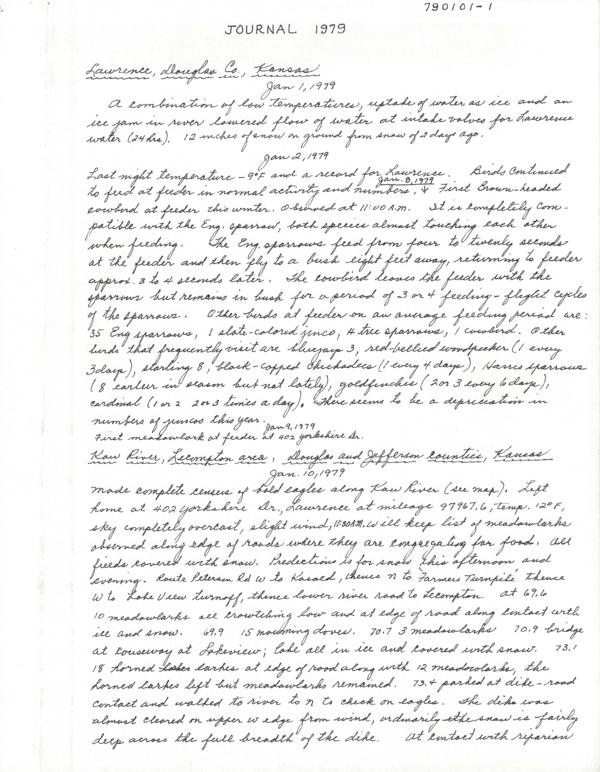 790101-1
JOURNAL 1979
Lawrence, Douglas Co., Kansas
Jan 1, 1979
A combination of low temperatures, uptake of water as ice and an
ice jam in river lowered flow of water at intake valves for Lawrence
water (24 hrs). 12 inches of snow on ground from snow of 2 days ago.
Jan 2, 1979
Last night temperature -9°F and a record for Lawrence. Birds continued
to feed at feeder in normal activity and numbers. Jan. 8, 1979 ↓ First Brown-headed
cowbird at feeder this winter. Observed at 11:00 A.M. It is completely com-
patible with the Eng. sparrow, both species almost touching each other
when feeding. The Eng. sparrows feed from four to twenty seconds
at the feeder and then fly to a bush eight feet away, returning to feeder
approx. 3 to 4 seconds later. The cowbird leaves the feeder with the
sparrows but remains in bush for a period of 3 or 4 feeding-flight cycles
of the sparrows. Other birds at feeder on an average feeding period are:
35 Eng sparrows, 1 slate-colored junco, 4 tree sparrows, 1 cowbird. Other
birds that frequently visit are bluejays 3, red-bellied woodpecker (1 every
3 days), starling 8, black-capped chickadees (1 every 4 days), Harris sparrows
(8 earlier in season but not lately), goldfinches (2 or 3 every 6 days),
cardinal (1 or 2 2 or 3 times a day). There seems to be a depreciation in
numbers of juncos this year.
Jan 9, 1979
First meadowlark at feeder at 402 Yorkshire Dr.
Kaw River, Lecompton area, Douglas and Jefferson Counties, Kansas
Jan. 10, 1979
Made complete census of bald eagles along Kaw River (see map). Left
home at 402 Yorkshire Dr., Lawrence at mileage 97967.6, temp. 12°F,
sky completely overcast, slight wind, 11:30 A.M. Will keep list of meadowlarks
observed along edge of roads where they are congregating for food. All
fields covered with snow. Predections is for snow this afternoon and
evening. Route Peterson Rd W to Kasold, thence N to Farmers Turnpike thence
W to Lake View turnoff, thence lower river road to Lecompton. At 69.6
10 meadowlarks all crowtching low and at edge of road along contact with
ice and snow. 69.9 15 mourning doves. 70.7 3 meadowlarks 70.9 bridge
at causeway at Lakeview; lake all in ice and covered with snow. 73.1
18 horned larkes at edge of road along with 12 meadowlarks, the
horned larkes left but meadowlarks remained. 73.4 parked at dike-road
contact and walked to river to N to check on eagles. The dike was
almost cleared on upper W edge from wind, ordinarily the snow is fairly
deep across the full breadth of the dike. At contact with riparian